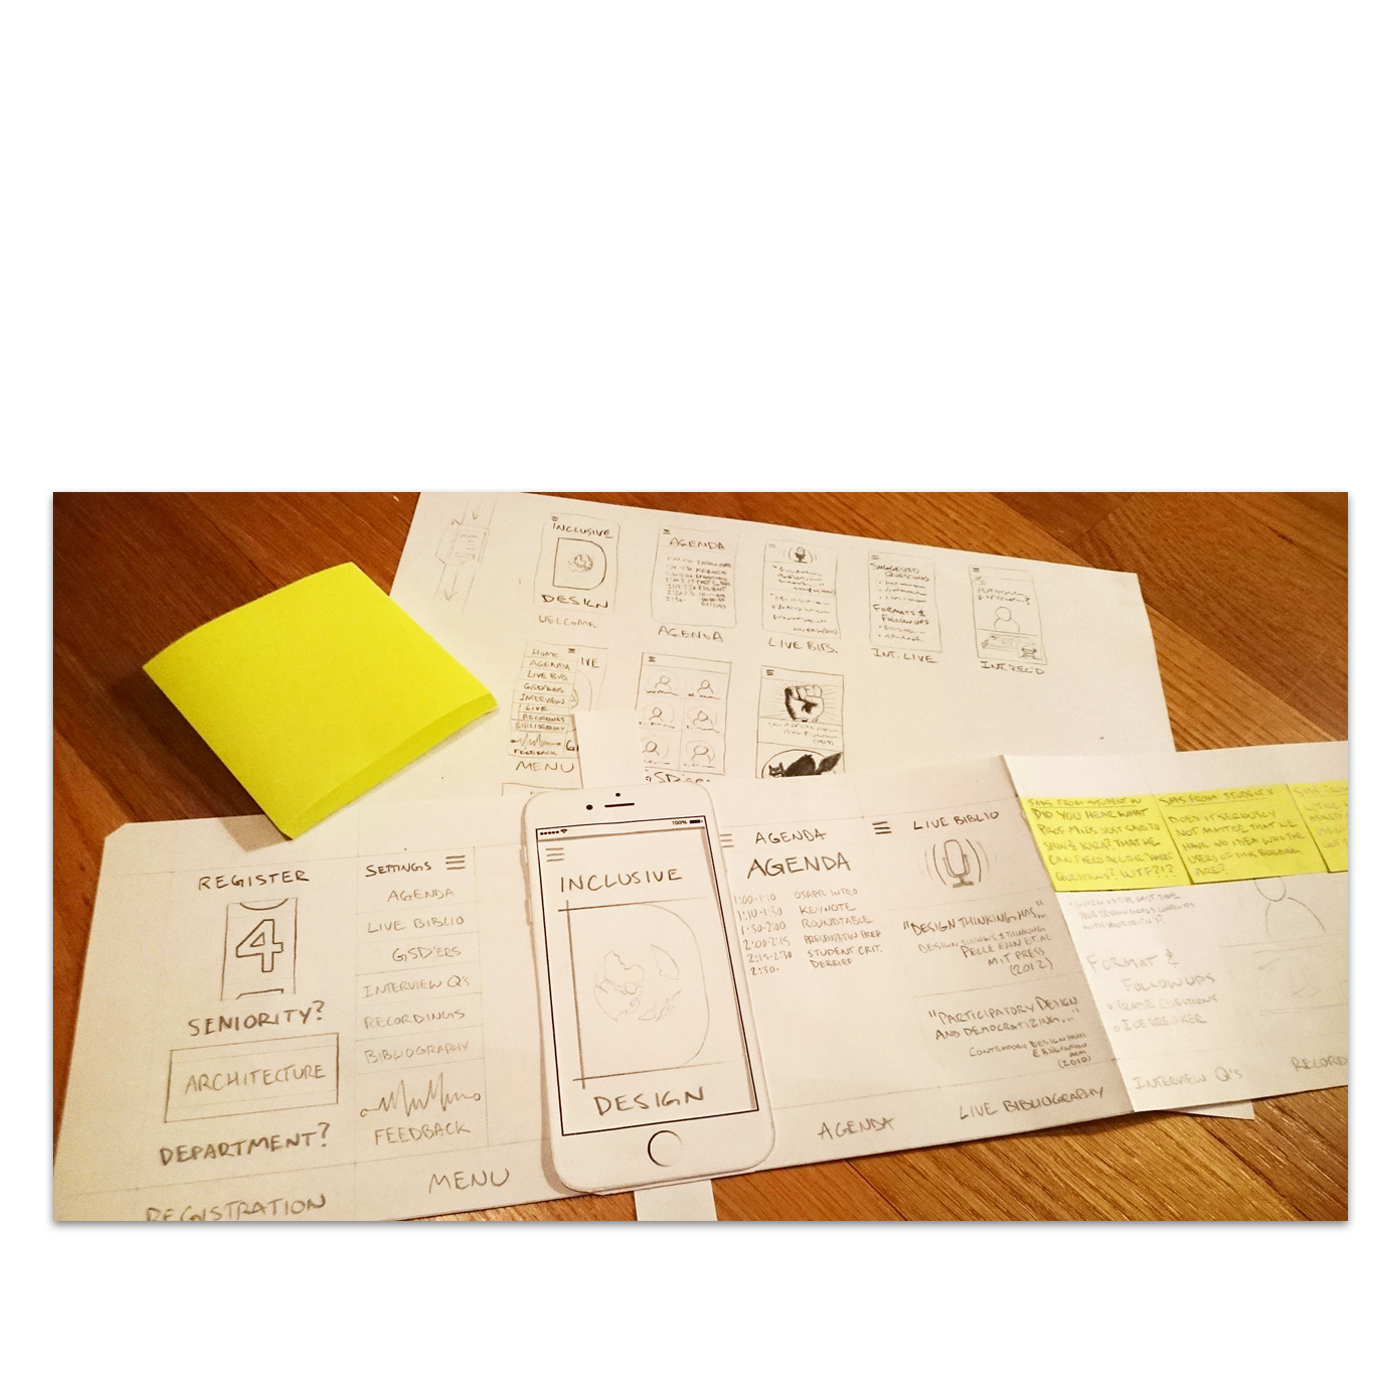 INCLUSIVE
DESIGN
WELCOME
AGENDA
AGENDA
LIVE BIBS.
SUGGESTED
QUESTIONS
FORMATS &
FOLLOWUPS
INT. LIVE
INT. REC'D
HOME
AGENDA
LIVE BIB.
GSD'ERS
INTERVIEW
LIVE
RECORDINGS
BIBLIOGRAPHY
FEEDBACK
MENU
IVE
REGISTER
4
SENIORITY?
ARCHITECTURE
DEPARTMENT?
REGISTRATION
SETTINGS
AGENDA
LIVE BIBLIO
GSD'ERS
INTERVIEW Q'S
RECORDINGS
BIBLIOGRAPHY
FEEDBACK
MENU
100%
INCLUSIVE
DESIGN
AGENDA
AGENDA
1:00-1:10 INTRO
1:10-1:30 KEYNOTE
1:30-2:00 ROUNDTABLE
2:00-2:15 PRESENTATION PREP
2:15-2:30 STUDENT CRIT.
2:30- DEBRIEF
AGENDA
LIVE BIBLIO
"DESIGN THINKING HAS..."
DESIGN THINGS & THINKING
PELLE EHN ET. AL
MIT PRESS
(2012)
"PARTICIPATORY DESIGN
AND DEMOCRATIZING..."
(2010)
LIVE BIBLIOGRAPHY
SMS FROM STUDENT W
DID YOU HEAR WHAT
PROF MIES JUST SAID TO
THAT HE
CAN FIELD ALL THE
QUESTIONS? WTF?!?
SMS FROM STUDENT X
DOES IT SERIOUSLY
NOT MATTER THAT WE
HAVE NO IDEA WHO THE
USERS OF THIS BUILDING
ARE?
FORMAT &
FOLLOWUPS
QUESTIONS
ICEBREAKER
INTERVIEW Q'S
RECORD